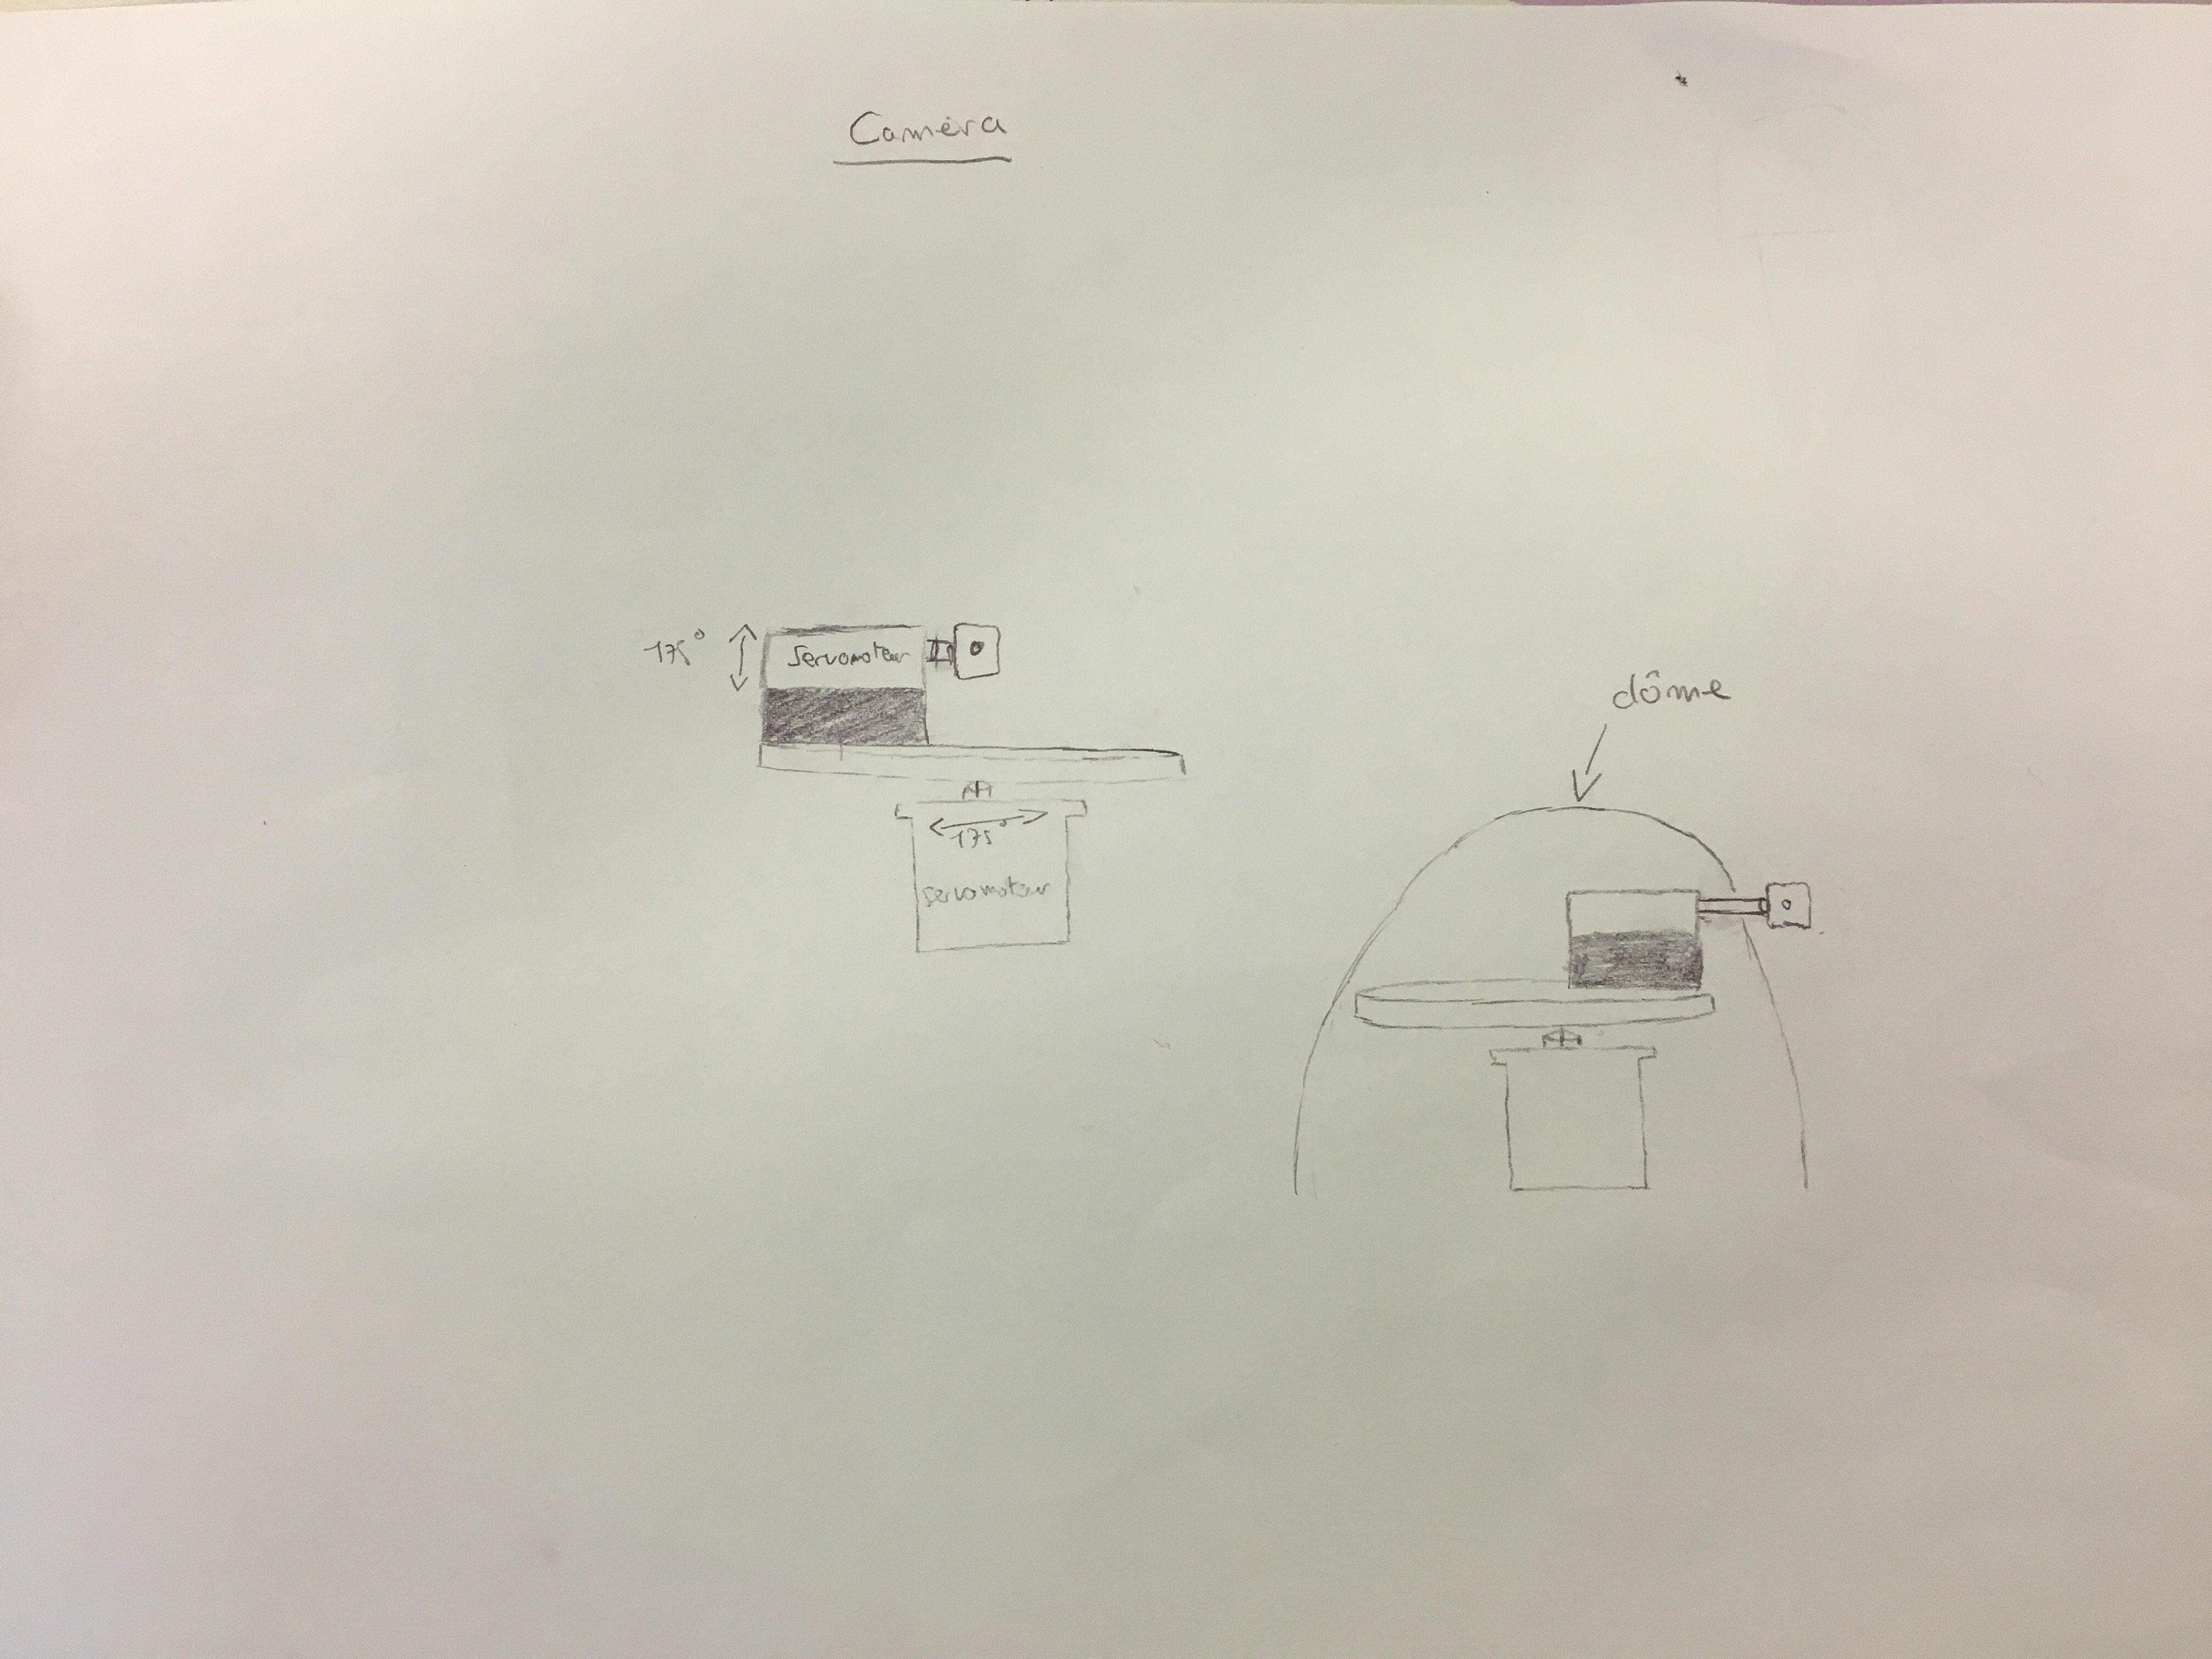 Caméra
175°
Servomoteur
175°
Servomoteur
dôme